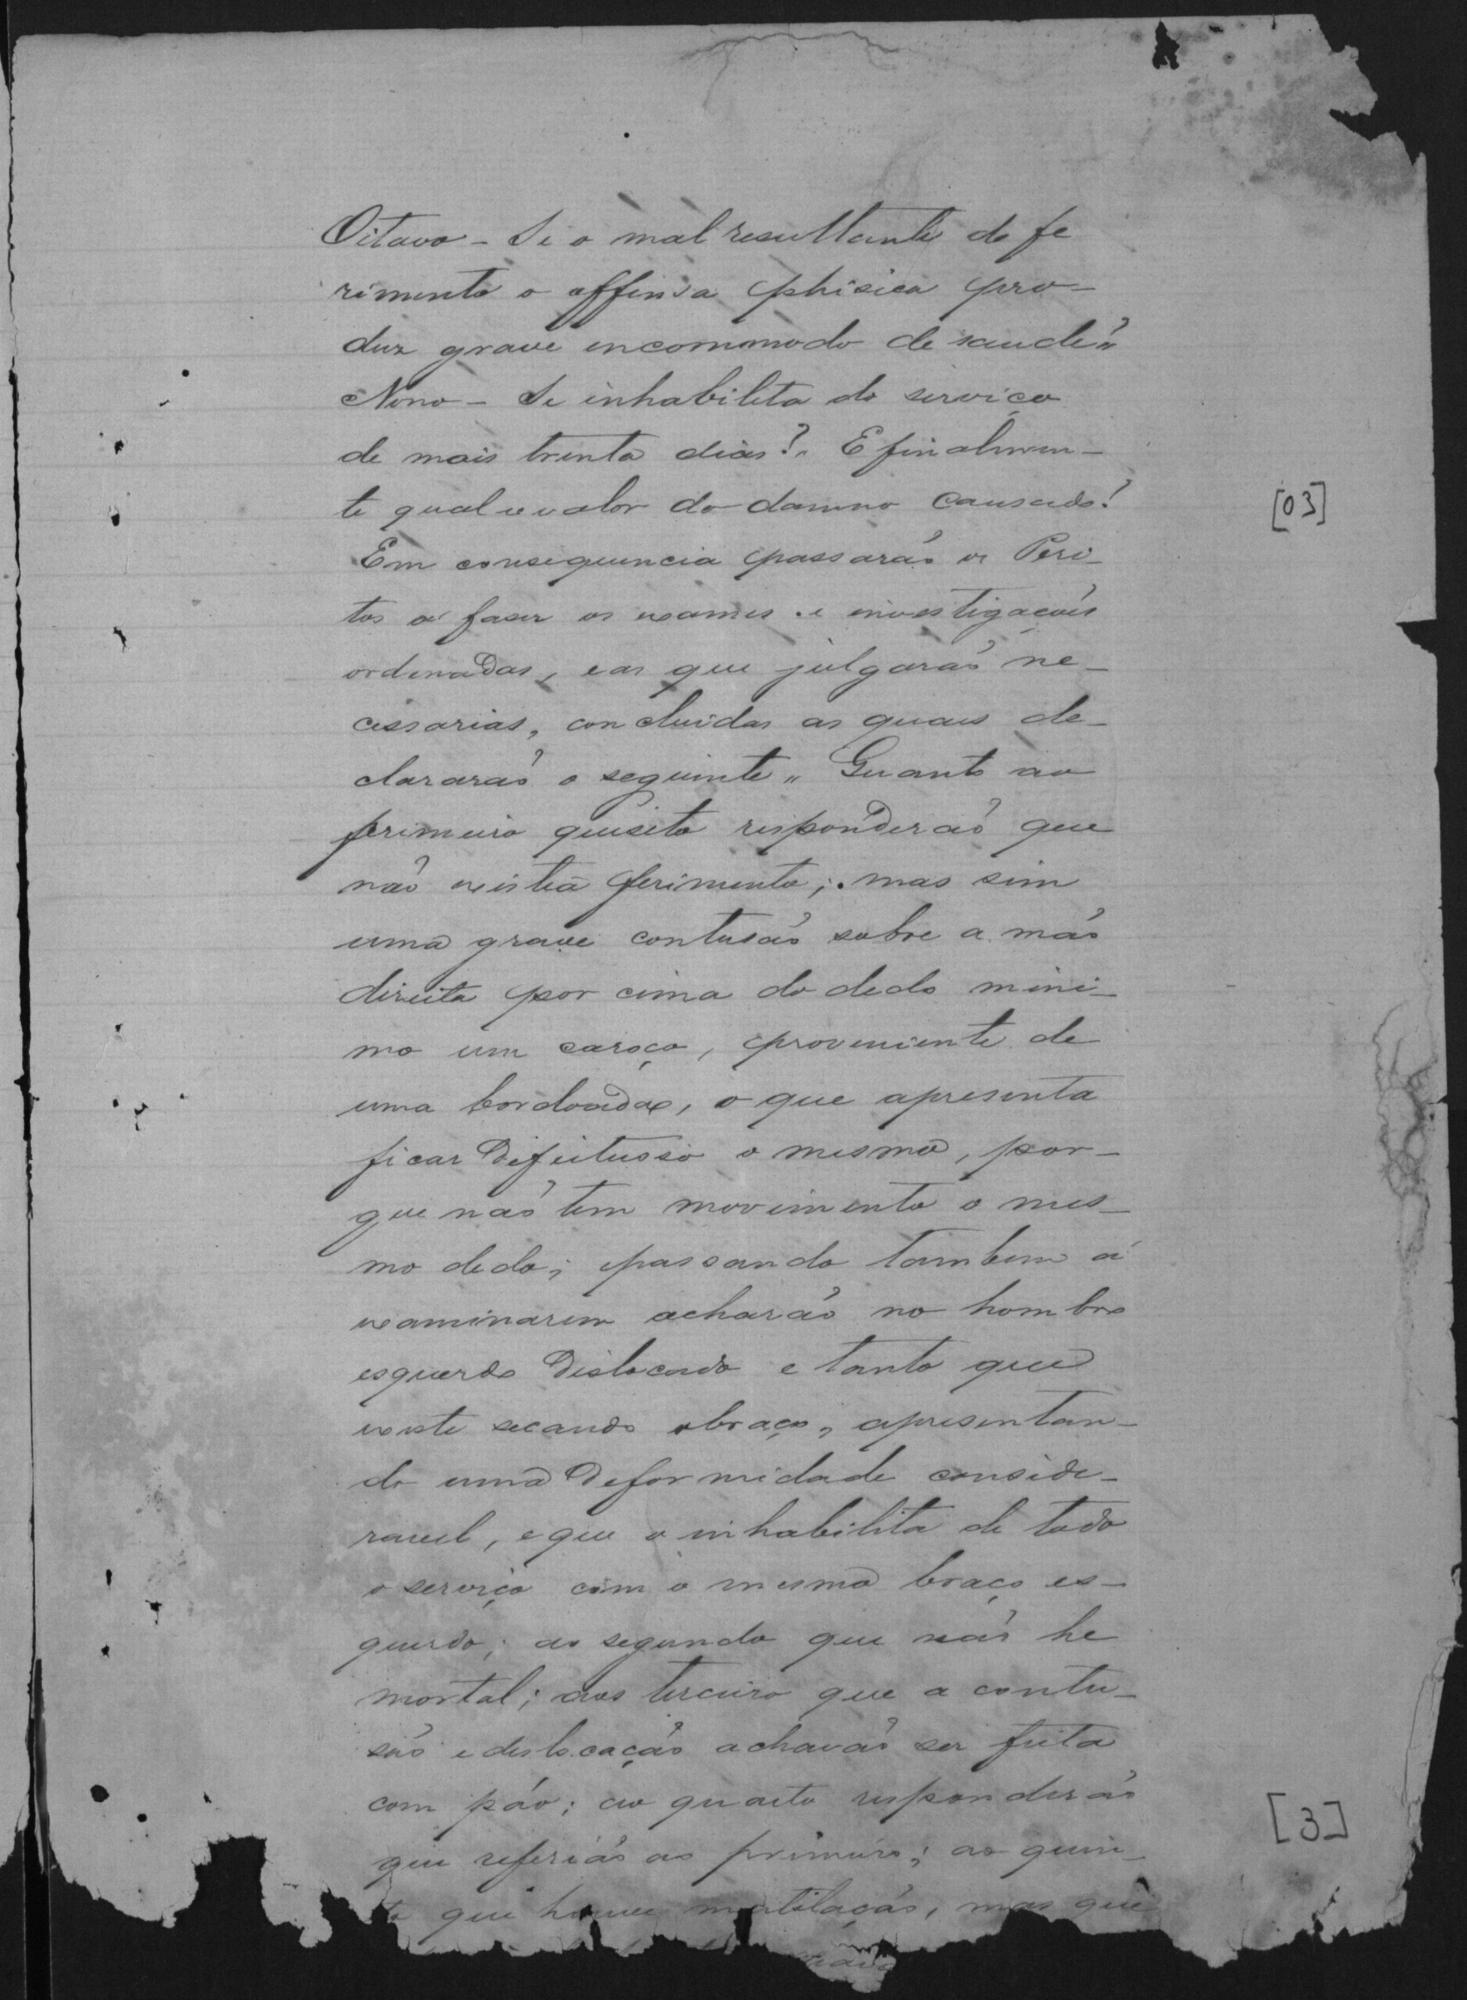 Oitavo - Se o mal resultante do fe
rimento o offensa phisica pro-
duz grave encommodo de saude"
Nono - Se inhabilita do serviço
de mais trinta dias?" E finalmen-
te qual o valor do damno causado?
Em consequencia passarão os Peri-
tos a faser os exames e investigaçoẽs
ordenadas, e as que julgarão ne-
cessarias, concluidas as quaes de-
clararão o seguinte" Quanto ao
primeiro quisito responderão que
não existia ferimento; mas sim
uma grave contusão sobre a mão
direita por cima do dedo mini-
mo um caroço, proveniente de
uma bordoada, o que apresenta
ficar defeituoso o mesmo, por-
que não tem movimento o mes-
mo dedo; passando tambem á
examinarem acharão no hombro
esquerdo dislocado e tanto que
existe secando o braço, apresentan-
do uma deformidade conside-
ravel, e que o inhabilita de todo
o serviço com o mesmo braço es-
querdo; ao segundo que não he
mortal; aos terceiro que a contu-
são e deslocação achavão ser feita
com páo; ao quarto responderão
que referião ao primeiro; ao quin-
to que houve mutilação, mas que
[03]
[3]